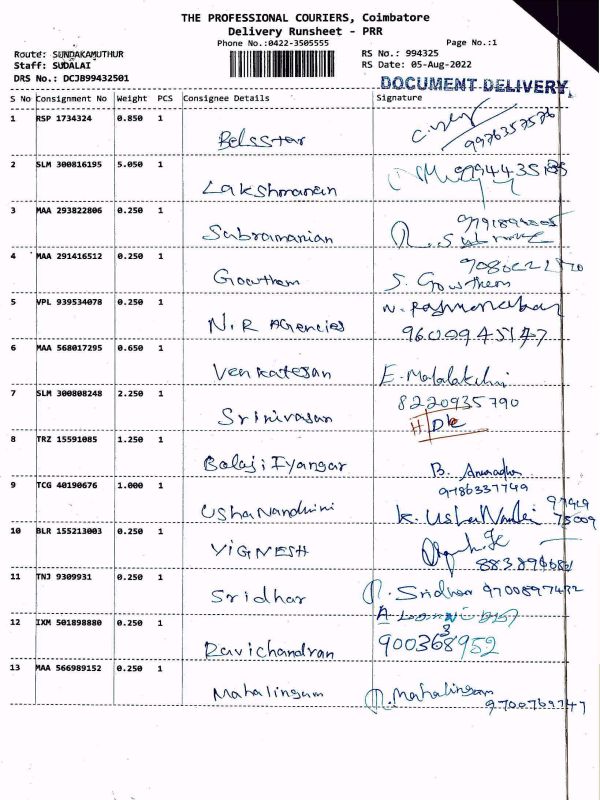 THE PROFESSIONAL COURIERS, Coimbatore
Delivery Runsheet - PRR
Phone No.:0422-3505555
Page No.:1
Route: SUNDAKAMUTHUR
RS No.: 994325
Staff: SUDALAI
RS Date: 05-Aug-2022
DRS No.: DCJB99432501
DOCUMENT DELIVERY
S No Consignment No Weight PCS Consignee Details Signature
1 RSP 1734324 0.850 1 Belsstar 9976357576
2 SLM 300816195 5.050 1 Lakshmanan
3 MAA 293822806 0.250 1 Subramanian
4 MAA 291416512 0.250 1 Gowtham S. Gowthem
5 VPL 939534078 0.250 1 N.R Agencies
9600945147
6 MAA 568017295 0.650 1 Venkatesan
7 SLM 300808248 2.250 1 Srinivasan 8220935790
8 TRZ 15591085 1.250 1 Balaji Iyangar B. Anuradha
9786337749
9 TCG 40190676 1.000 1 Usha Nandhini
10 BLR 155213003 0.250 1 VIGNESH
11 TNJ 9309931 0.250 1 Sridhar R. Sridhar
12 IXM 501898880 0.250 1 Ravichandran
13 MAA 566989152 0.250 1 Mahalingam R. Mahalingam
9700769747